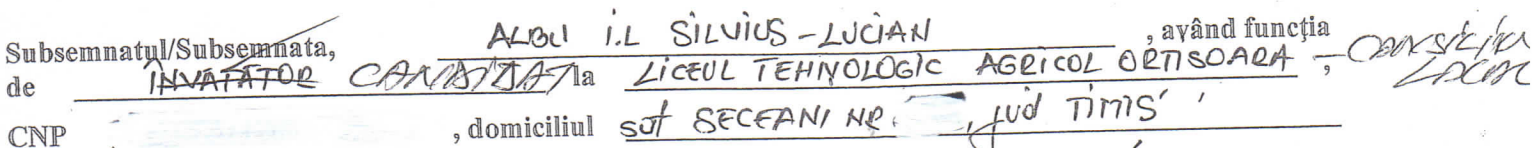 Subsemnatul/Subsemnata, ALBU I.L SILVIUS-LUCIAN, având funcția
de ÎNVĂȚĂTOR CANDIDAT la LICEUL TEHNOLOGIC AGRICOL ORTISOARA, - CONSILIU LOCAL
CNP , domiciliul sat SECEANI NR. , jud TIMIS